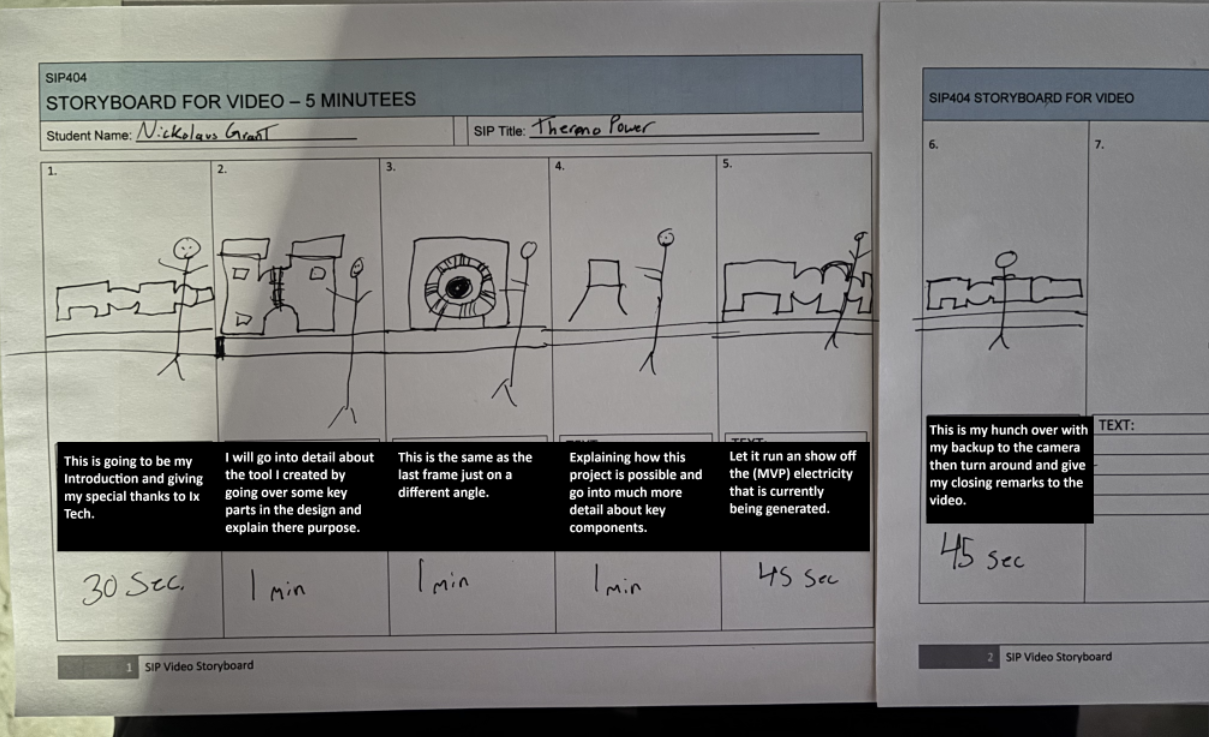 SIP404
STORYBOARD FOR VIDEO – 5 MINUTEES
Student Name: Nickolaus Grant
SIP Title: Thermo Power
1.
2.
3.
4.
5.
This is going to be my
Introduction and giving
my special thanks to Ix
Tech.
I will go into detail about
the tool I created by
going over some key
parts in the design and
explain there purpose.
This is the same as the
last frame just on a
different angle.
Explaining how this
project is possible and
go into much more
detail about key
components.
TEXT:
Let it run an show off
the (MVP) electricity
that is currently
being generated.
30 Sec.
1 min
1 min
1 min
45 Sec
1 SIP Video Storyboard
SIP404 STORYBOARD FOR VIDEO
6.
7.
This is my hunch over with
my backup to the camera
then turn around and give
my closing remarks to the
video.
TEXT:
45 Sec
2 SIP Video Storyboard